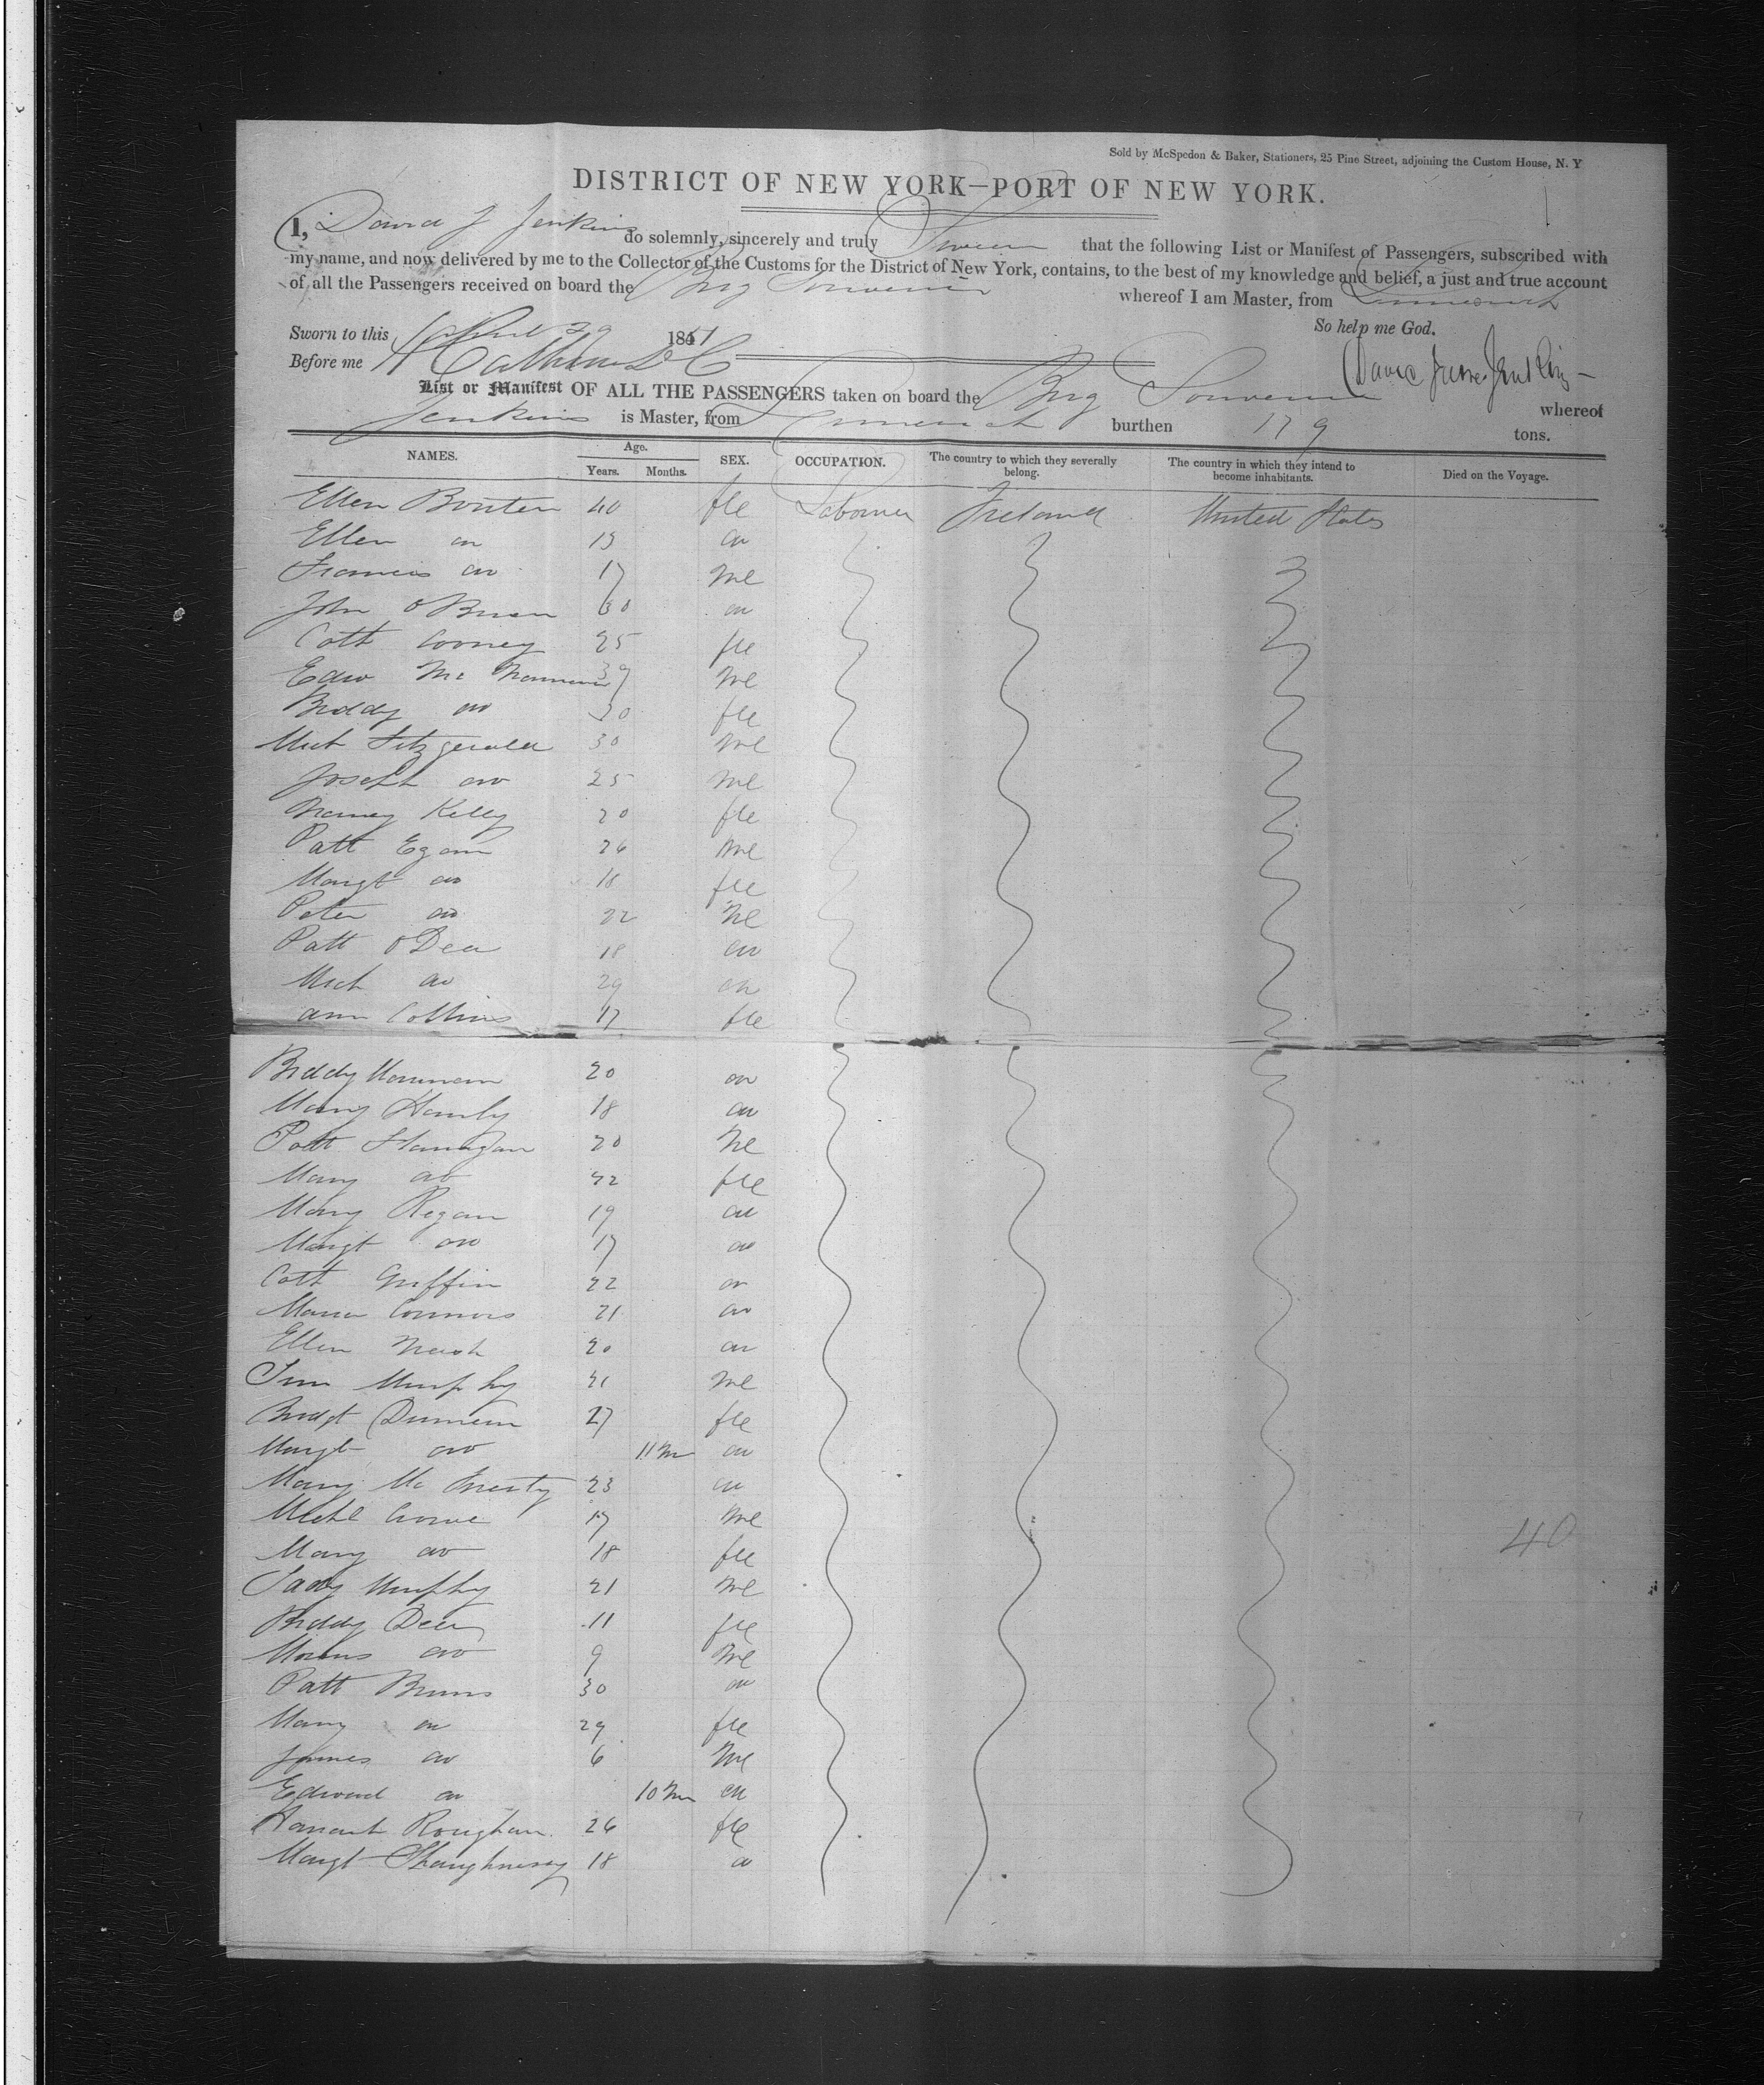 Sold by McSpedon & Baker, Stationers, 25 Pine Street, adjoining the Custom House, N. Y
DISTRICT OF NEW YORK—PORT OF NEW YORK.
I, David J Jenkins do solemnly, sincerely and truly Swear that the following List or Manifest of Passengers, subscribed with
my name, and now delivered by me to the Collector of the Customs for the District of New York, contains, to the best of my knowledge and belief, a just and true account
of all the Passengers received on board the Brig Souvenir whereof I am Master, from Limerick
So help me God.
Sworn to this April 29 1851
Before me
David James Jenkins
List or Manifest OF ALL THE PASSENGERS taken on board the Brig Souvenir whereof
Jenkins is Master, from Limerick burthen 179 tons.
NAMES. Age. Years. Months. SEX. OCCUPATION. The country to which they severally belong. The country in which they intend to become inhabitants. Died on the Voyage.
Ellen 40 fle Labourer Ireland United States
Ellen do 13 do
Francis do 17 Me
John O'Brien 30 do
Cath Cooney 25 fle
Edw Mc 39 Me
Biddy do 30 fle
Mich Fitzgerald 30 Me
Joseph do 25 Me
Nancy Kelly 20 fle
Patt Egan 26 Me
Margt do 18 fle
Peter do 22 Me
Patt O'Dea 18 do
Mich do 29 do
Ann Collins 17 fle
Biddy 20 do
Mary Hanly 18 do
Patt Flanagan 20 Me
Mary do 22 fle
Mary Regan 19 do
Margt do 17 do
Cath Griffin 22 do
Maria Connors 21 do
Ellen Nash 20 do
Tim Murphy 21 Me
Bridgt 27 fle
Margt do 11 Mo do
Mary Mc 23 do
Michl Crowe 17 Me
Mary do 18 fle
Thady Murphy 21 Me
Biddy Deen 11 fle
do 9 Me
Patt Burns 30 do
Mary do 29 fle
James do 6 Me
Edward do 10 Mo do
Hanah Roughan 26 fle
Margt Shaughnessy 18 do
40